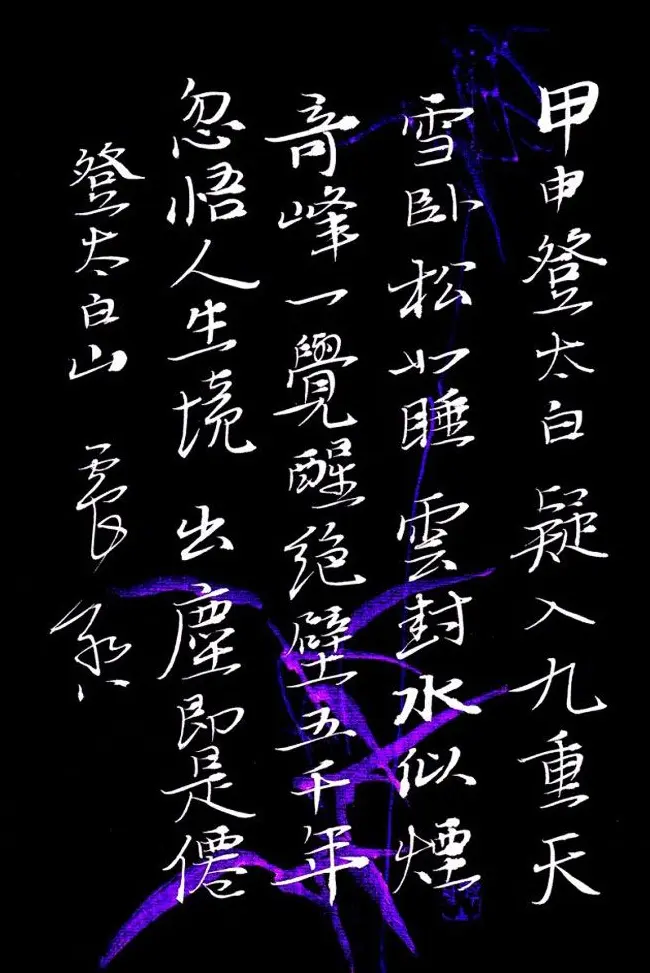 甲申登太白 疑入九重天
雪卧松如睡 雲封水似煙
奇峰一覺醒絶壁五千年
忽悟人生境 出塵即是僊
登太白山 震